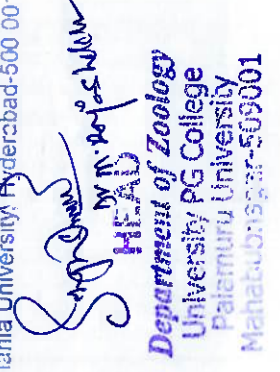 ania University, Hyderabad-500 00
HEAD
Department of Zoology
University PG College
Palamuru University
Mahabubnagar-509001